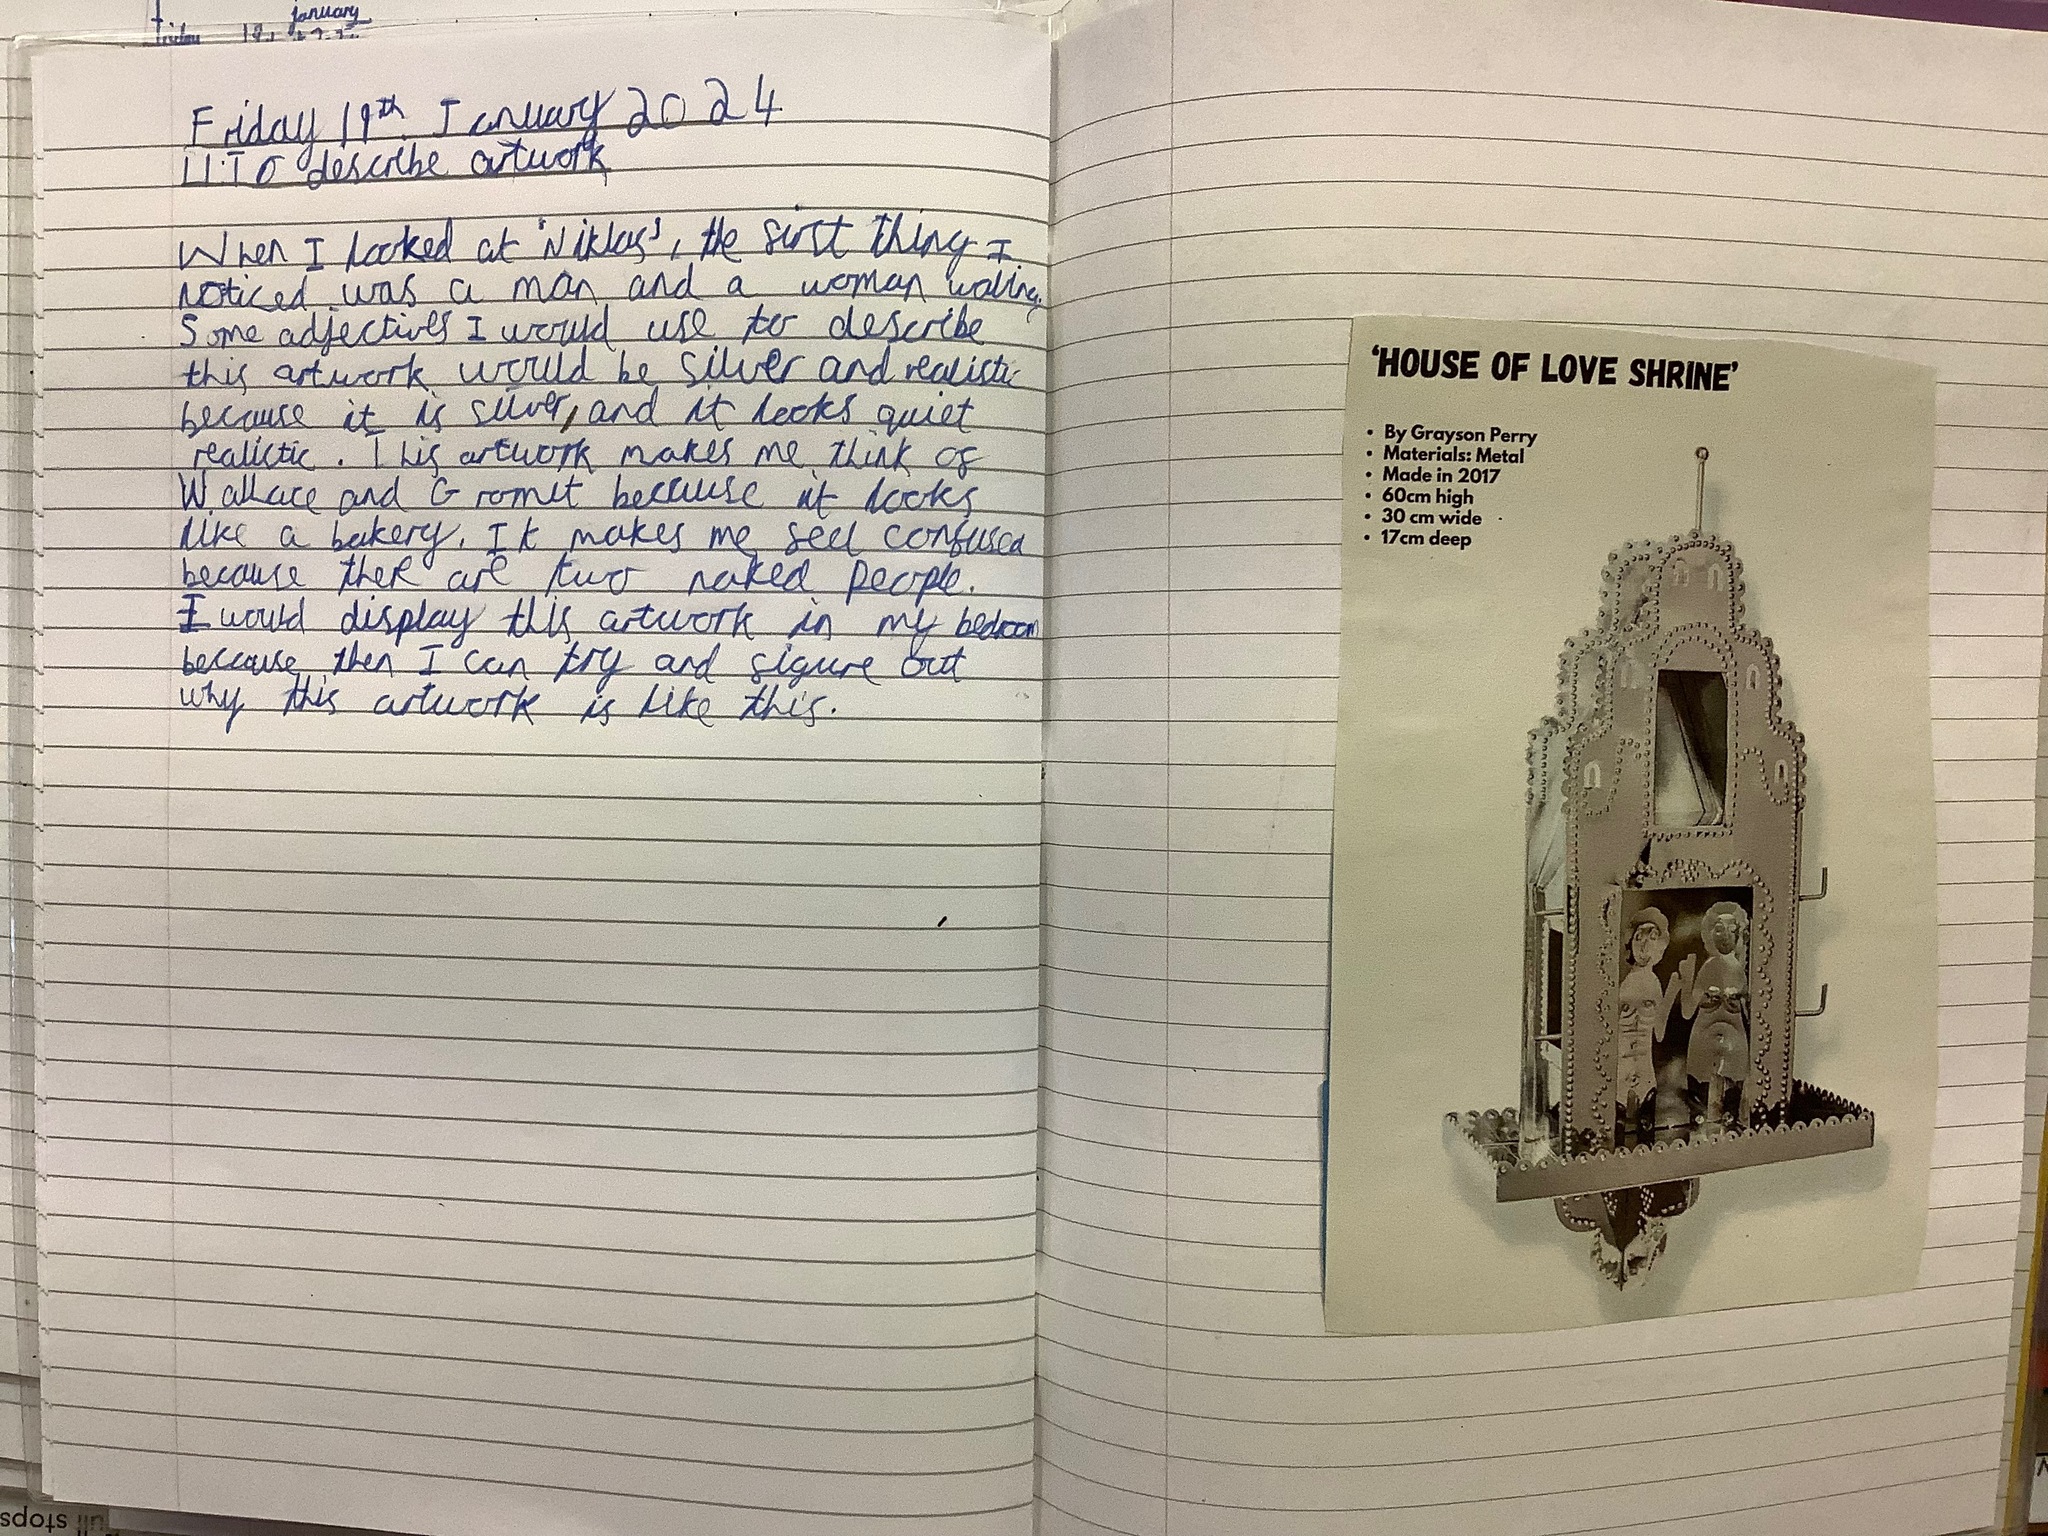 january
Friday 19th January 2024
LI:To describe artwork
When I looked at 'Niklas', the first thing I
noticed was a man and a woman waling.
Some adjectives I would use to describe
this artwork would be silver and realistic
because it is silver, and it looks quiet
realistic. This artwork makes me think of
Wallace and Gromit because it looks
like a bakery. It makes me feel confused
because ther are two naked people.
I would display this artwork in my bedroom
because then I can try and figure out
why this artwork is like this.
'HOUSE OF LOVE SHRINE'
• By Grayson Perry
• Materials: Metal
• Made in 2017
• 60cm high
• 30 cm wide
• 17cm deep
stops